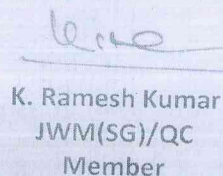 K. Ramesh Kumar
JWM(SG)/QC
Member